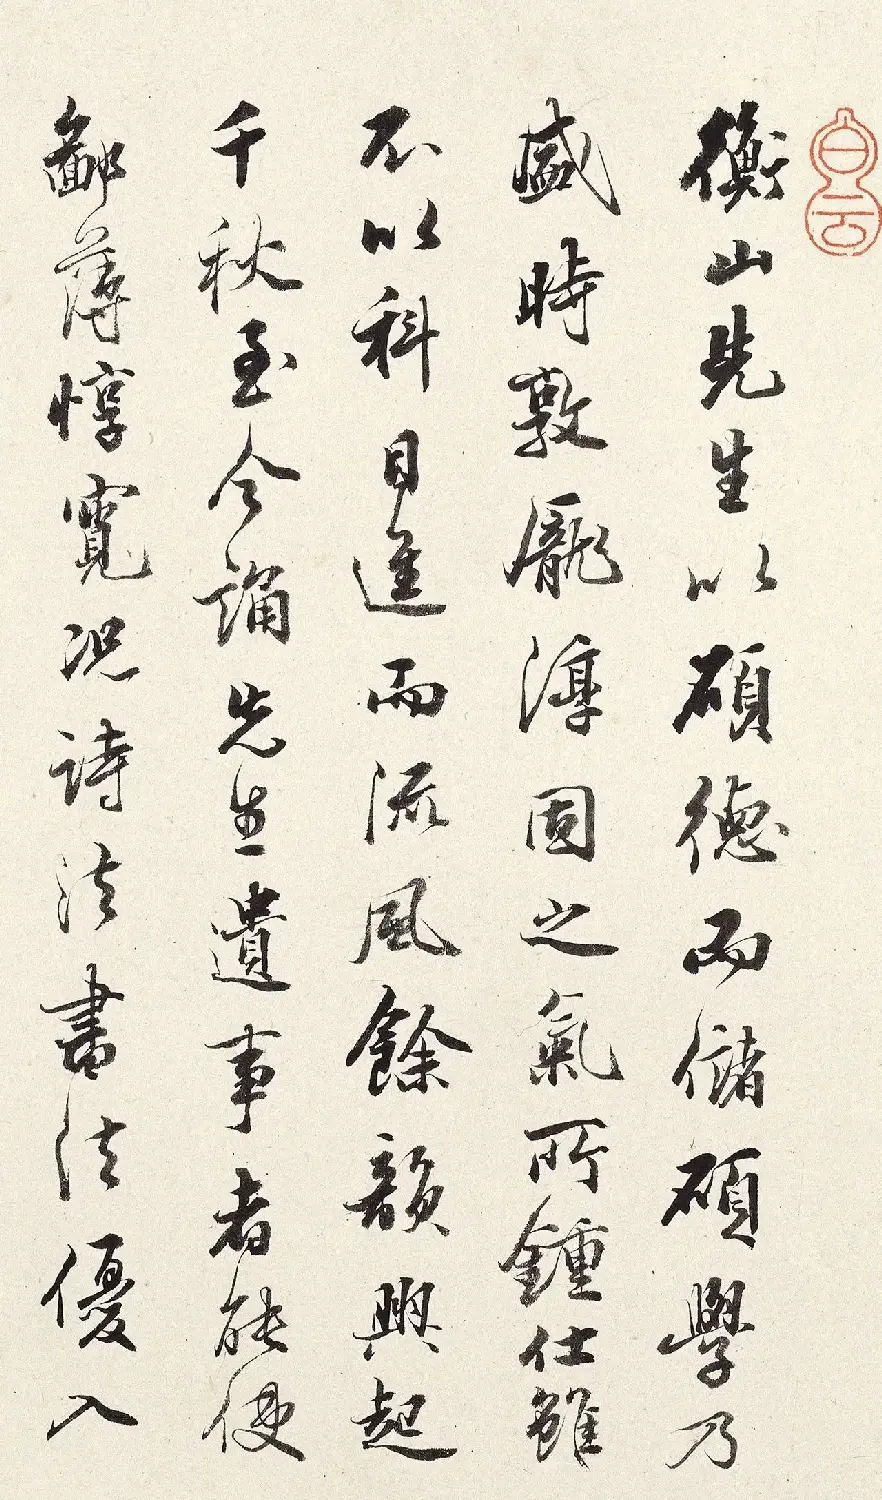 白雲
衡山先生以碩德而儲碩學乃
盛時敦龐淳固之氣所鍾仕雖
不以科目進而流風餘韻興起
千秋至今誦先生遺事者能使
鄙薄惇寬況詩法書法優入